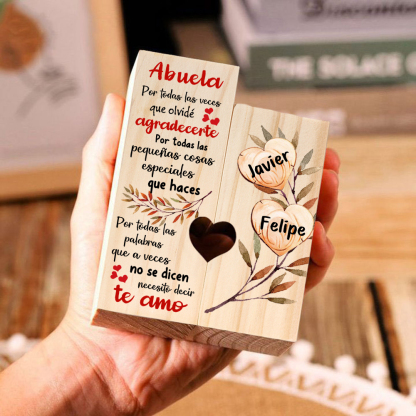 Abuela
Por todas las veces
que olvidé
agradecerte
Por todas las
pequeñas cosas
especiales
que haces
Por todas las
palabras
que a veces
no se dicen
necesito decir
te amo
Javier
Felipe
THE SOLACE O